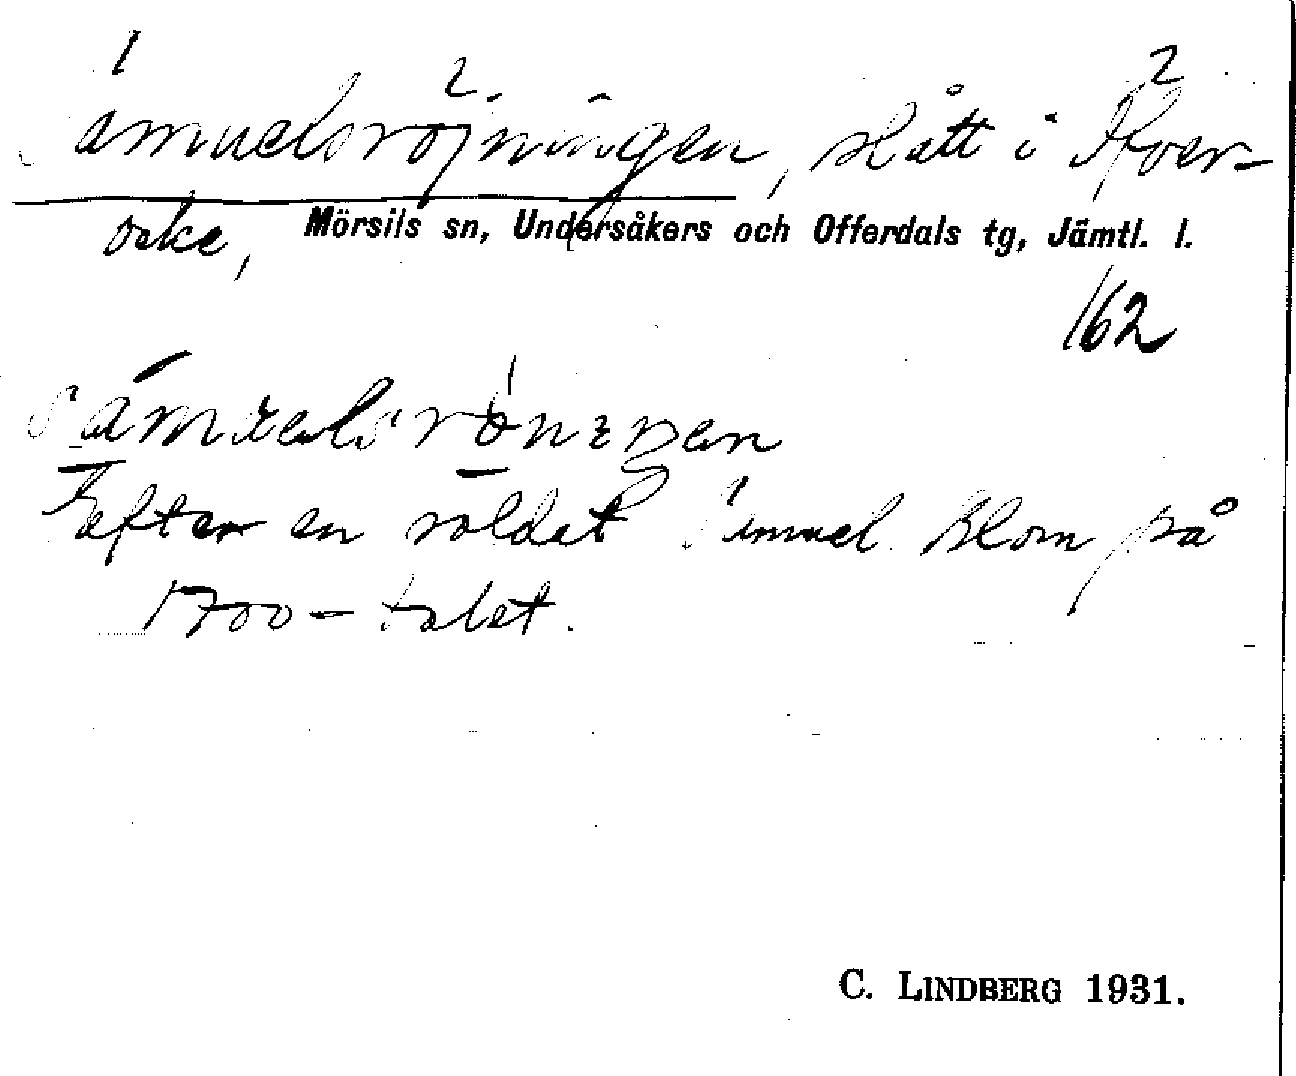 1 2 2
Samuelsröjningen, slått i Överocke,
Mörsils sn, Undersåkers och Offerdals tg, Jämtl. l.
162
efter en soldat Samuel Blom på
1700-talet.
C. LINDBERG 1931.